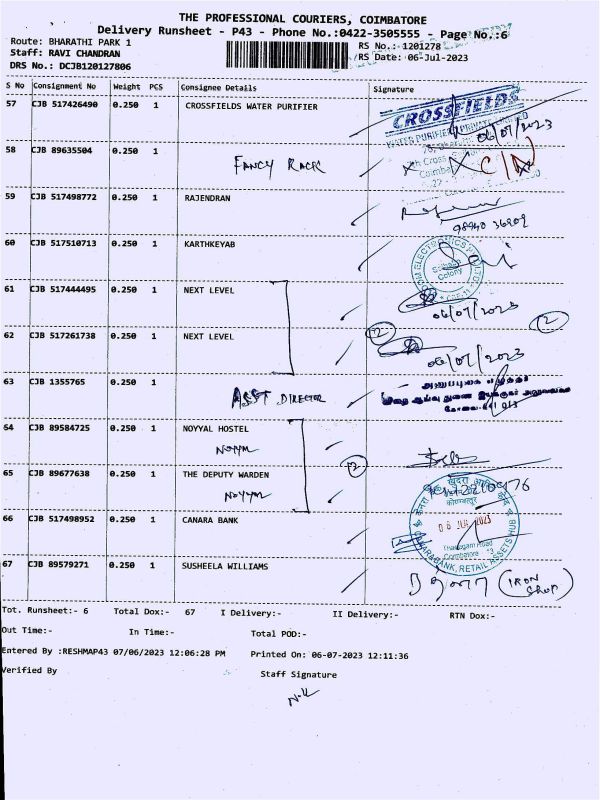 THE PROFESSIONAL COURIERS, COIMBATORE
Delivery Runsheet - P43 - Phone No.:0422-3505555 - Page No.:6
Route: BHARATHI PARK 1
RS No.: 1201278
Staff: RAVI CHANDRAN
RS Date: 06-Jul-2023
DRS No.: DCJB120127806
S No Consignment No Weight PCS Consignee Details Signature
57 CJB 517426490 0.250 1 CROSSFIELDS WATER PURIFIER
CROSSFIELDS
WATER PURIFIER PRIVATE LIMITED
06/07/2023
58 CJB 89635504 0.250 1
FANCY RACK
59 CJB 517498772 0.250 1 RAJENDRAN
60 CJB 517510713 0.250 1 KARTHKEYAB
Saibaba
Colony
61 CJB 517444495 0.250 1 NEXT LEVEL
06/07/2023
12
62 CJB 517261738 0.250 1 NEXT LEVEL
12
06/07/2023
63 CJB 1355765 0.250 1
ASST DIRECTOR
64 CJB 89584725 0.250 1 NOYYAL HOSTEL
Noyyal
65 CJB 89677638 0.250 1 THE DEPUTY WARDEN
12
Noyyal
66 CJB 517498952 0.250 1 CANARA BANK
Thadagam Road
Coimbatore
CANARA BANK, RETAIL ASSETS HUB
67 CJB 89579271 0.250 1 SUSHEELA WILLIAMS
(IRON SHOP)
Tot. Runsheet:- 6 Total Dox:- 67 I Delivery:- II Delivery:- RTN Dox:-
Out Time:- In Time:- Total POD:-
Entered By :RESHMAP43 07/06/2023 12:06:28 PM Printed On: 06-07-2023 12:11:36
Verified By Staff Signature